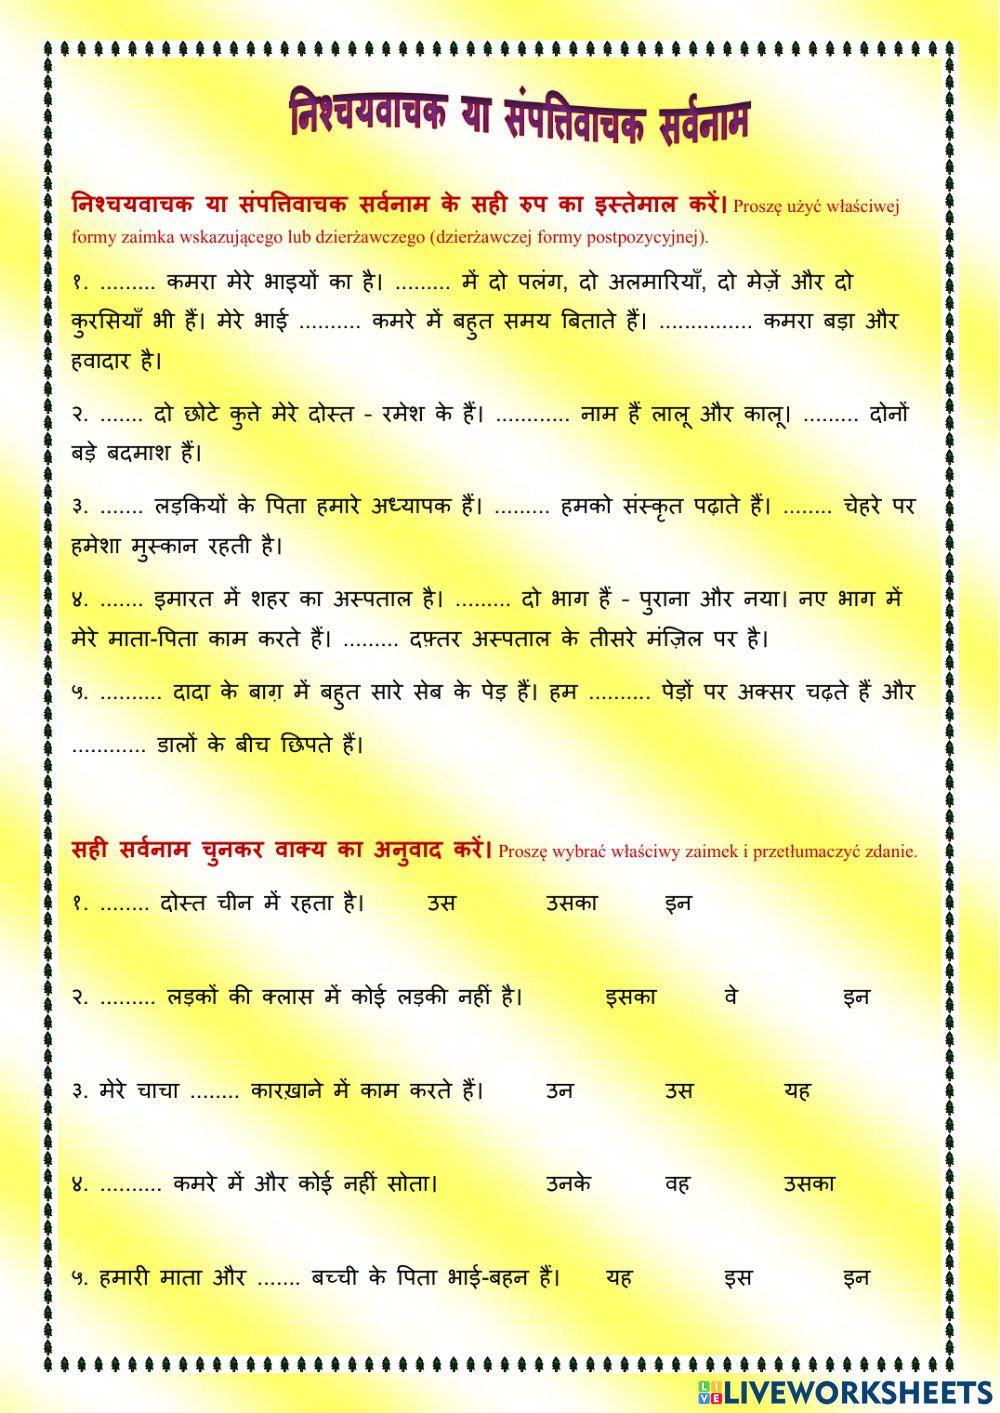 निश्चयवाचक या संपत्तिवाचक सर्वनाम
निश्चयवाचक या संपत्तिवाचक सर्वनाम के सही रुप का इस्तेमाल करें। Proszę użyć właściwej
formy zaimka wskazującego lub dzierżawczego (dzierżawczej formy postpozycyjnej).
१. ......... कमरा मेरे भाइयों का है। ......... में दो पलंग, दो अलमारियाँ, दो मेज़ें और दो
कुरसियाँ भी हैं। मेरे भाई .......... कमरे में बहुत समय बिताते हैं। ............... कमरा बड़ा और
हवादार है।
२. ....... दो छोटे कुत्ते मेरे दोस्त – रमेश के हैं। ............ नाम हैं लालू और कालू। ......... दोनों
बड़े बदमाश हैं।
३. ....... लड़कियों के पिता हमारे अध्यापक हैं। ......... हमको संस्कृत पढ़ाते हैं। ........ चेहरे पर
हमेशा मुस्कान रहती है।
४. ....... इमारत में शहर का अस्पताल है। ......... दो भाग हैं – पुराना और नया। नए भाग में
मेरे माता-पिता काम करते हैं। ......... दफ़्तर अस्पताल के तीसरे मंज़िल पर है।
५. .......... दादा के बाग़ में बहुत सारे सेब के पेड़ हैं। हम .......... पेड़ों पर अक्सर चढ़ते हैं और
............ डालों के बीच छिपते हैं।
सही सर्वनाम चुनकर वाक्य का अनुवाद करें। Proszę wybrać właściwy zaimek i przetłumaczyć zdanie.
१. ........ दोस्त चीन में रहता है। उस उसका इन
२. ......... लड़कों की क्लास में कोई लड़की नहीं है। इसका वे इन
३. मेरे चाचा ........ कारख़ाने में काम करते हैं। उन उस यह
४. .......... कमरे में और कोई नहीं सोता। उनके वह उसका
५. हमारी माता और ....... बच्ची के पिता भाई-बहन हैं। यह इस इन
LIVE LIVEWORKSHEETS